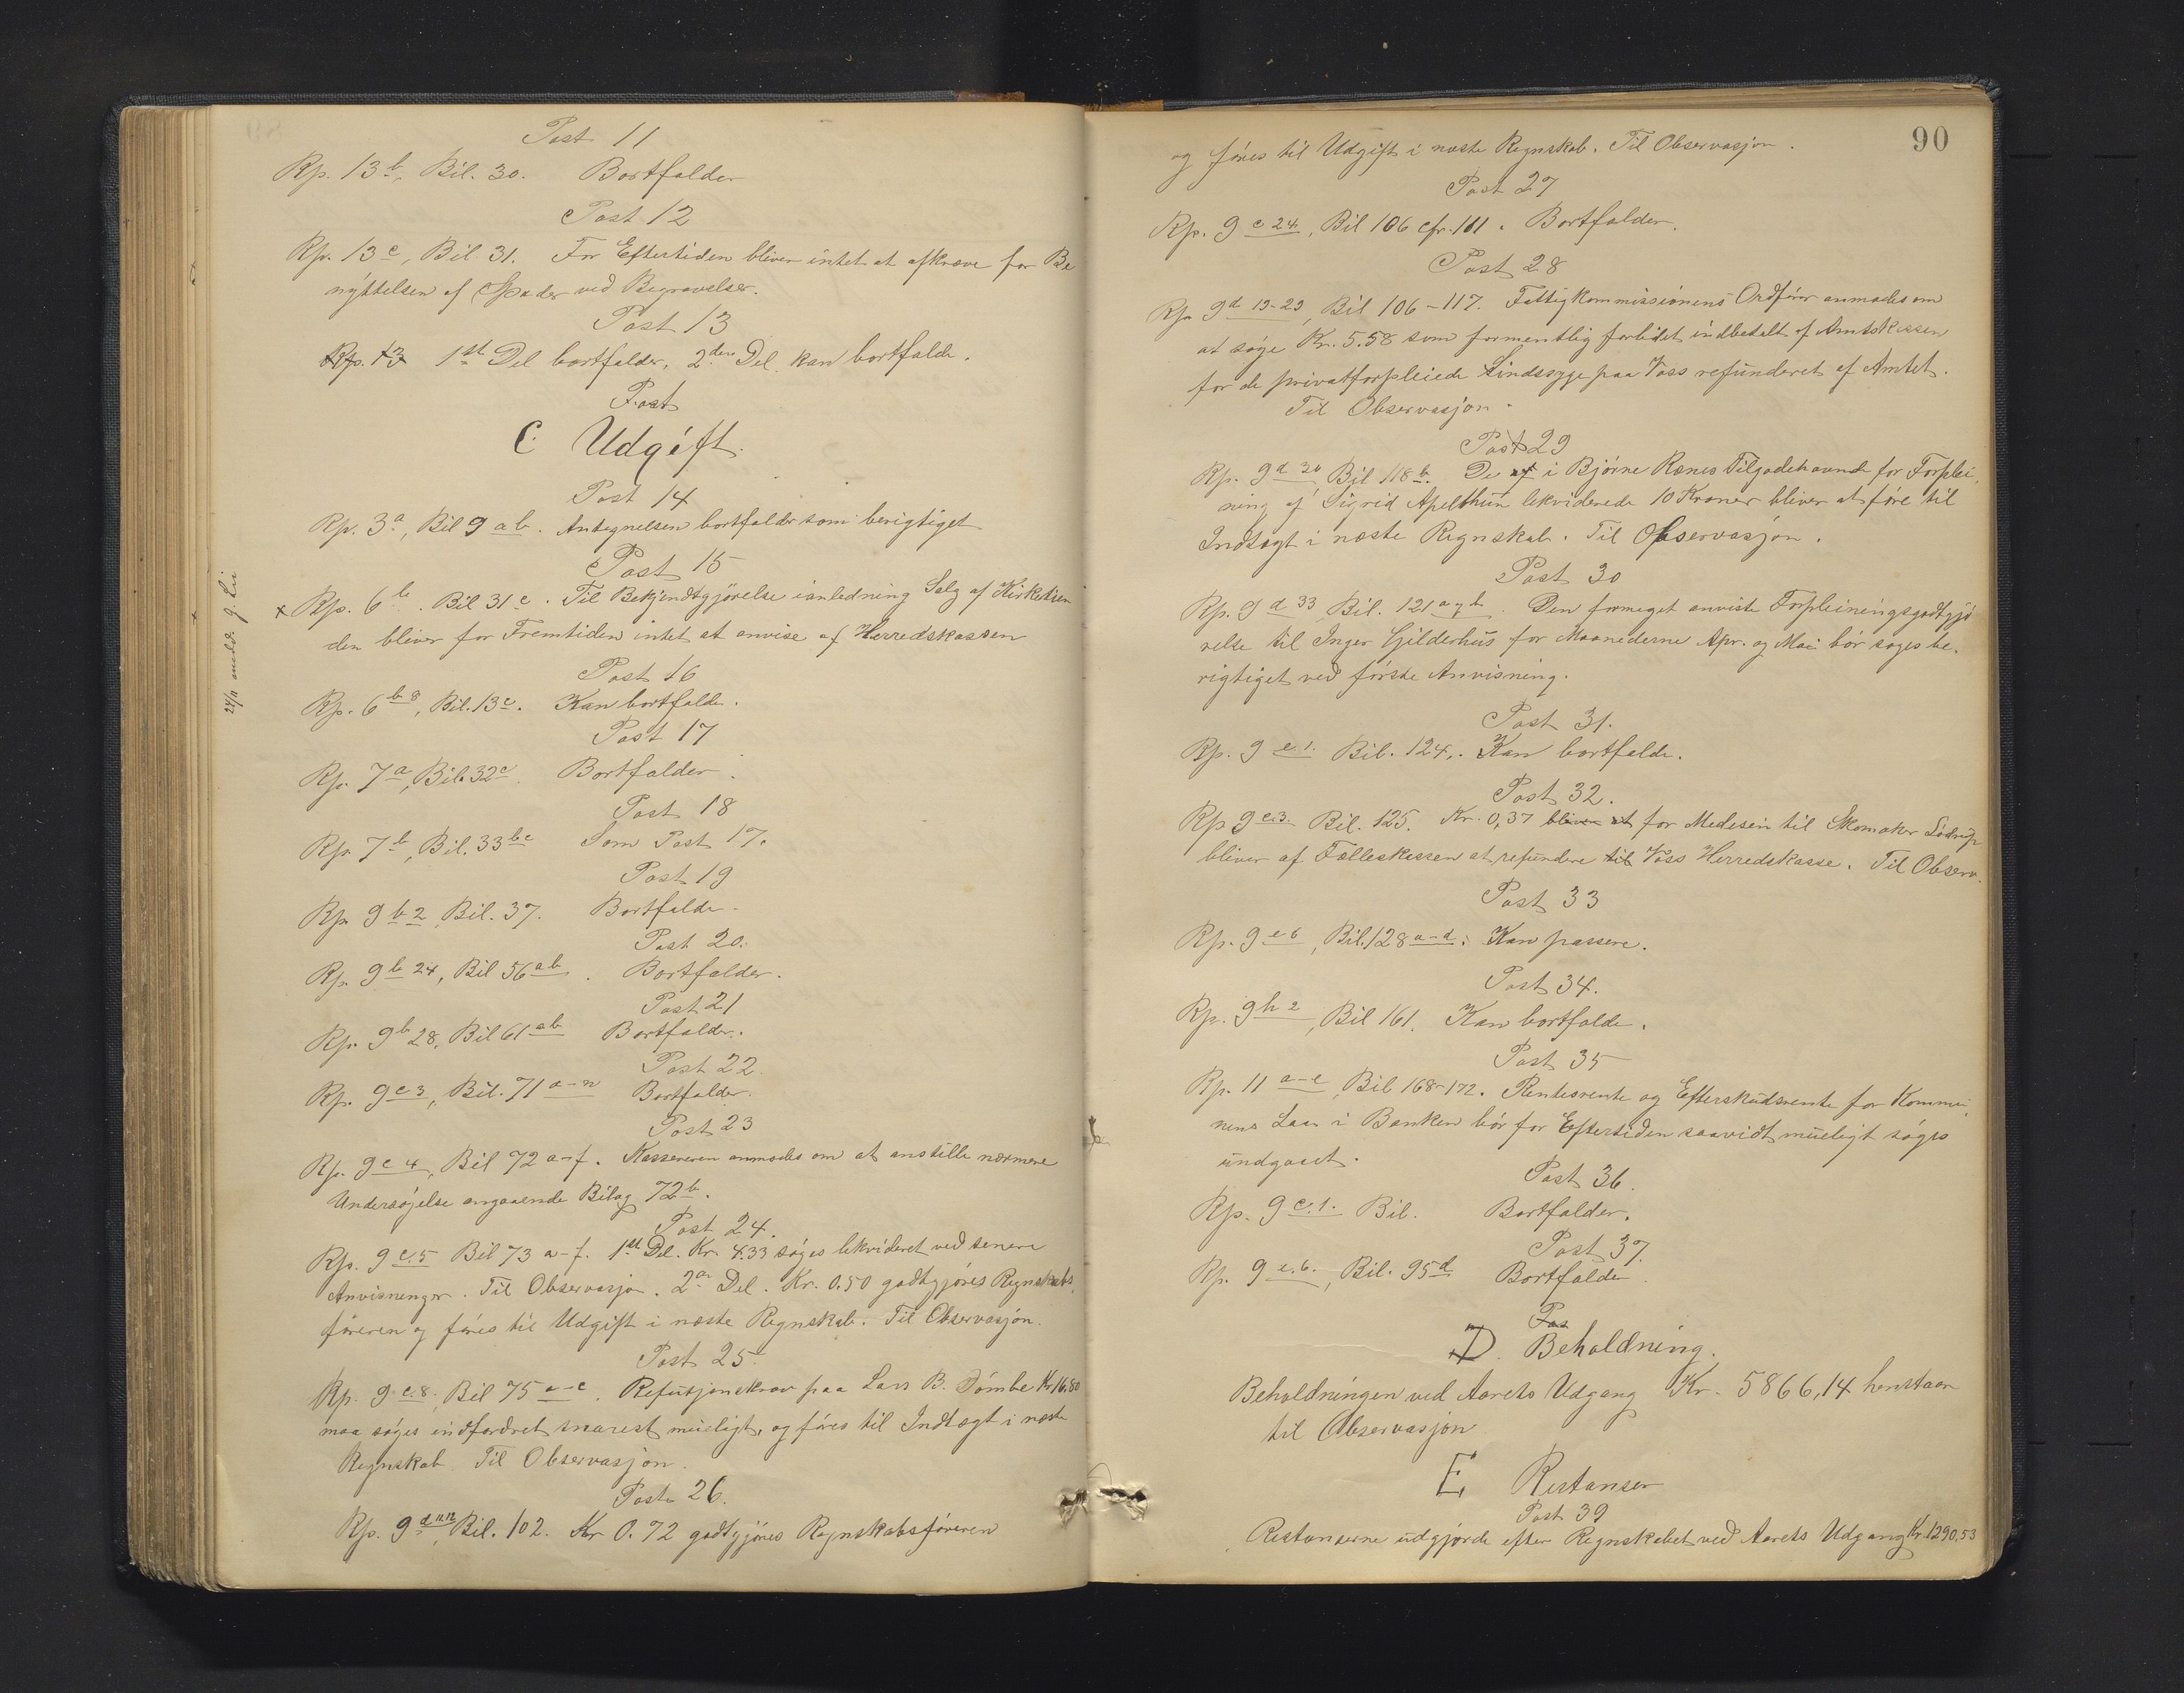 Post 11
Rp. 13 b, Bil. 30. Bortfalder
Post 12
Rp. 13 c, Bil. 31. For Eftertiden bliver intet at afkræve for Be
nyttelsen af Spader ved Begravelser.
Post 13
Rp. 13 1st Del bortfalder, 2den Del kan bortfalde.
Post
C. Udgift.
Post 14
Rp. 3 a, Bil 9 ab. Antegnelsen bortfalder som berigtiget
Post 15
x Rp. 6 b. Bil 31 c. Til Bekjendtgjørelse ianledning Salg af Kirketien
den bliver for Fremtiden intet at anvise af Herredskassen
24/11 medd. G. Lie
Post 16
Rp. 6 b 8, Bil. 13 c. Kan bortfalde.
Post 17
Rp. 7 a, Bil. 32 c Bortfalder.
Post 18
Rp. 7 b, Bil. 33 bc Som Post 17.
Post 19
Rp. 9 b 2, Bil. 37. Bortfalde.
Post 20.
Rp. 9 b 24, Bil 56 ab. Bortfalder.
Post 21
Rp. 9 b 28, Bil 61 ab Bortfalder.
Post 22.
Rp. 9 c 3, Bil. 71 a-n Bortfalder.
Post 23
Rp. 9 c 4, Bil 72 a-f. Kassereren anmodes om at anstille nærmere
Undersøgelse angaaende Bilag 72 b.
Post 24.
Rp. 9 c. 5 Bil 73 a-f. 1st Del. Kr. 4.33 søges likvideret ved senere
Anvisninger. Til Observasjon. 2a Del. Kr. 0.50 godtgjøres Regnskabs
føreren og føres til Udgift i næste Regnskab. Til Observasjon.
Post 25.
Rp. 9 c. 8, Bil 75 a-c. Refusjonskrav paa Lars B. Dømbe Kr 16.80
maa søges indfordret snarest mueligt, og føres til Indtægt i næste
Regnskab. Til Observasjon.
Post 26.
Rp. 9 d 11 12, Bil. 102. Kr 0.72 godtgjøres Regnskabsføreren
90
og føres til Udgift i næste Regnskab. Til Observasjon.
Post 27
Rp. 9 c 24, Bil 106 cfr. 111. Bortfalder.
Post 28
Rp. 9 d 19-29, Bil 106-117. Fattigkommissionens Ordfører anmodes om
at søge Kr. 5.58 som formentlig forlidet indbetalt af Amtskassen
for de privatforpleiede Sindssyge paa Voss refunderet af Amtet.
Til Observasjon.
Post 29
Rp. 9 d 30 Bil 118 b. De af i Bjørne Rones Tilgodehavende for Forplei
ning af Sigrid Apelthun lekviderede 10 Kroner bliver at føre til
Indtægt i næste Regnskab. Til Observasjon.
Post 30
Rp. 9 d 33, Bil. 121 a og b. Den formeget anviste Forpleiningsgodtgjø
relse til Inger Gjilderhus for Maanederne Apr. og Mai bør søges be.
rigtiget ved første Anvisning.
Post 31.
Rp. 9 e. 1. Bil. 124. Kan bortfalde.
Post 32.
Rp 9 e. 3. Bil. 125. Kr. 0,37 bliver at for Medesin til Skomaker Lødrup
bliver af Fælleskassen at refundere til Voss Herredskasse. Til Observ.
Post 33
Rp. 9 e 6, Bil. 128 a-d. Kan passere.
Post 34.
Rp. 9 h 2, Bil 161. Kan bortfalde.
Post 35
Rp. 11 a-e, Bil 168-172. Rentesrente og Efterskudsrente for Kommu
nens Laan i Banken bør for Eftertiden saavidt mueligt søges
undgaaet.
Post 36.
Rp. 9 c. 1. Bil. Bortfalder.
Post 37.
Rp. 9 e. 6., Bil. 95 d Bortfalde.
Pos
D. Beholdning.
Beholdningen ved Aarets Udgang Kr. 5866,14 henstaar
til Observasjon
E Restanser
Post 39
Restanserne udgjorde efter Regnskabet ved Aarets Udgang Kr. 1290.53